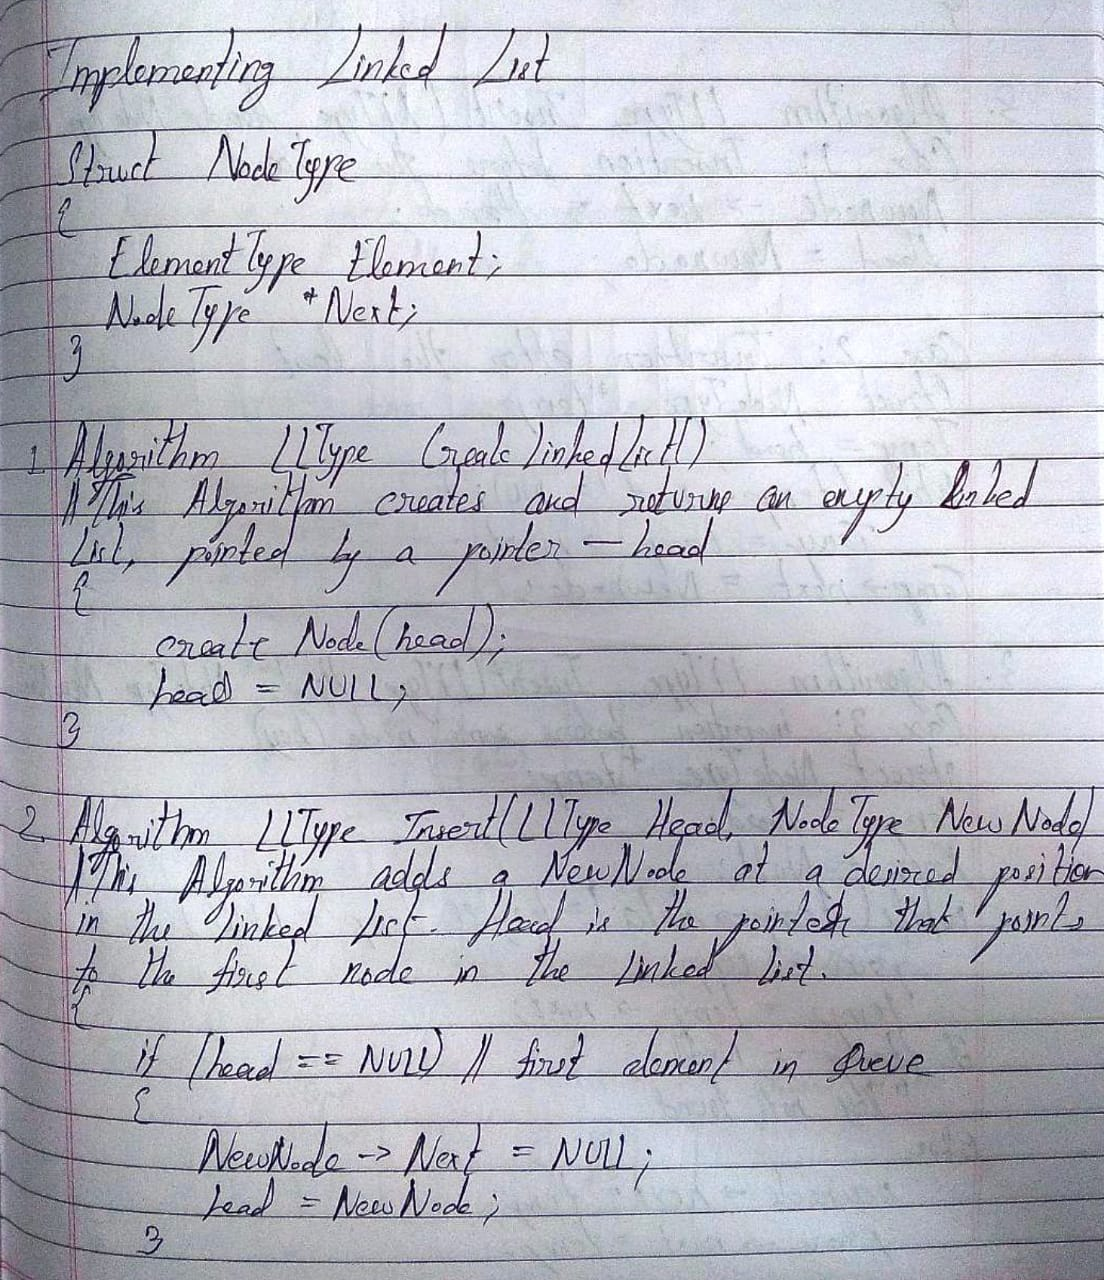 Implementing Linked List
Struct NodeType
{
ElementType Element;
NodeType *Next;
}
1 Algorithm LLType Create Linked List()
// This Algorithm creates and returns an empty linked
List, pointed by a pointer — head
{
create Node(head);
head = NULL;
}
2 Algorithm LLType Insert(LLType Head, NodeType NewNode)
// This Algorithm adds a NewNode at a desired position
in the linked list. Head is the pointer that points
to the first node in the linked list.
{
if (head == NULL) // first element in Queue
{
NewNode -> Next = NULL;
head = NewNode;
}